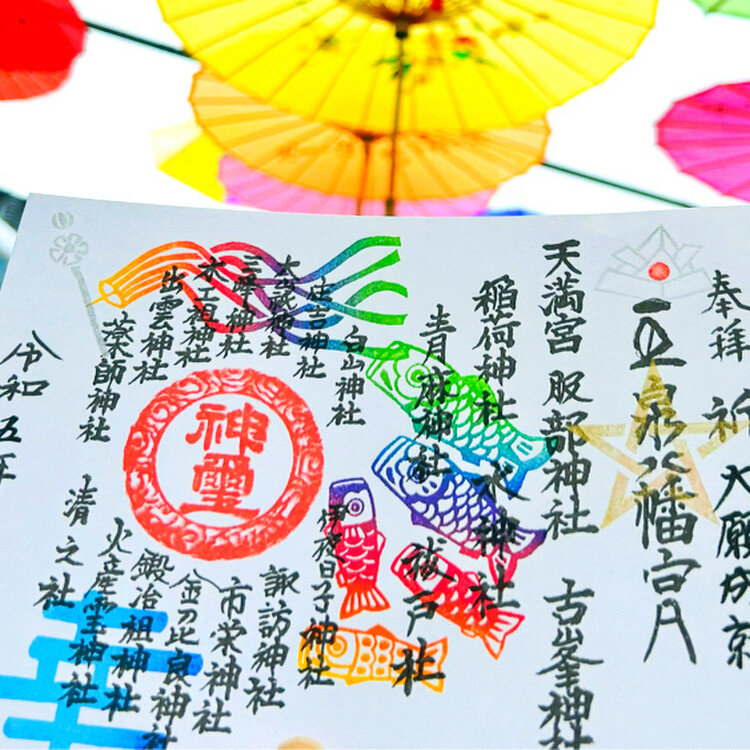 奉拝
祈 大願成
泉八幡宮
天満宮 服部神社 古峯神社
稲荷神社 水神社
青麻神社 祓戸社
白山神社
住吉神社
神社
三峰神社
木工祖神社
出雲神社
薬師神社
神璽
日子神社
諏訪神社
市栄神社
金刀比良神社
鍛冶祖神社
火産霊神社
清之社
令和五年